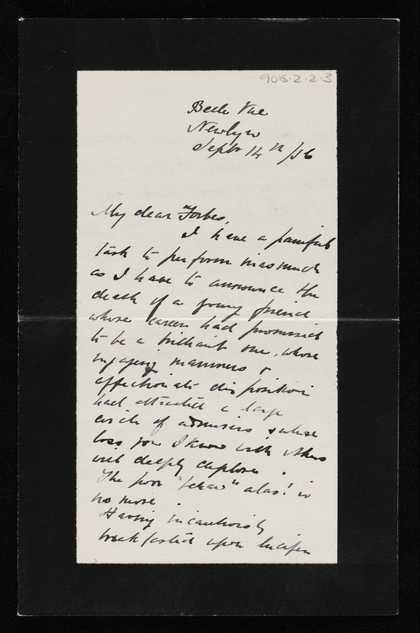 906.2.2.3
Belle Vue
Newlyn
Septr 14th /86
My dear Forbes,
I have a painful
task to perform inasmuch
as I have to announce the
death of a young friend
whose career had promised
to be a brilliant one, whose
engaging manners &
affectionate disposition
had attracted a large
circle of admirers & whose
loss you I know with others
will deeply deplore.
The poor "
" alas! is
no more.
Having incautiously
breakfasted upon lucifer